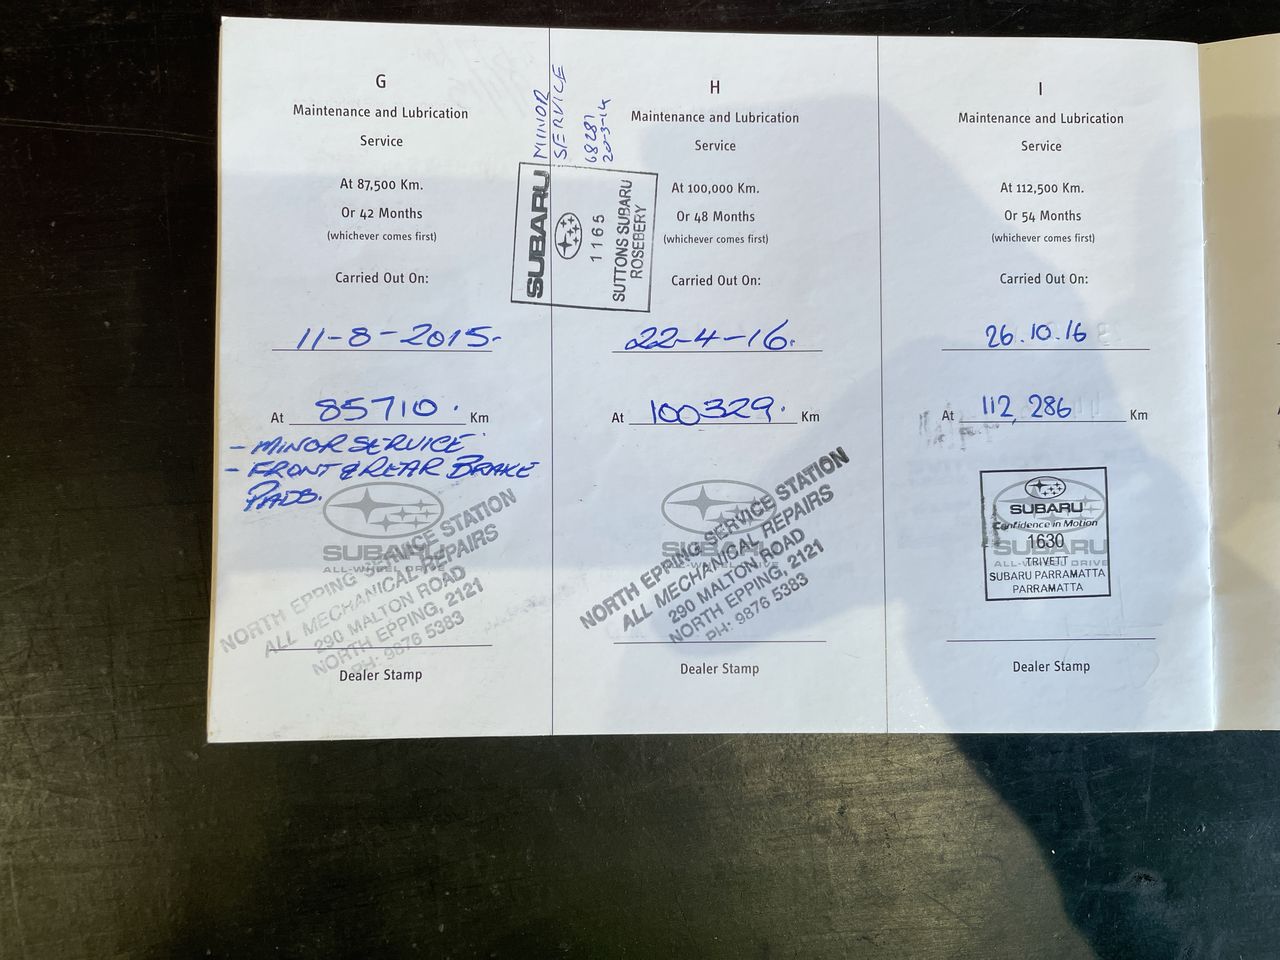 G
Maintenance and Lubrication
Service
At 87,500 Km.
Or 42 Months
(whichever comes first)
Carried Out On:
11-8-2015.
At 85710. Km
- MINOR SERVICE
- FRONT & REAR BRAKE
PADS.
SUBARU
ALL-WHEEL DRIVE
NORTH EPPING SERVICE STATION
ALL MECHANICAL REPAIRS
290 MALTON ROAD
NORTH EPPING, 2121
PH: 9876 5383
Dealer Stamp
MINOR
SERVICE
68281
20-3-14
SUBARU
1165
SUTTONS SUBARU
ROSEBERY
H
Maintenance and Lubrication
Service
At 100,000 Km.
Or 48 Months
(whichever comes first)
Carried Out On:
22-4-16.
At 100329. Km
SUBARU
NORTH EPPING SERVICE STATION
ALL MECHANICAL REPAIRS
290 MALTON ROAD
NORTH EPPING, 2121
PH: 9876 5383
Dealer Stamp
I
Maintenance and Lubrication
Service
At 112,500 Km.
Or 54 Months
(whichever comes first)
Carried Out On:
26.10.16
At 112,286 Km
SUBARU
Confidence in Motion
1630
SUBARU
ALL-WHEEL DRIVE
TRIVETT
SUBARU PARRAMATTA
PARRAMATTA
Dealer Stamp